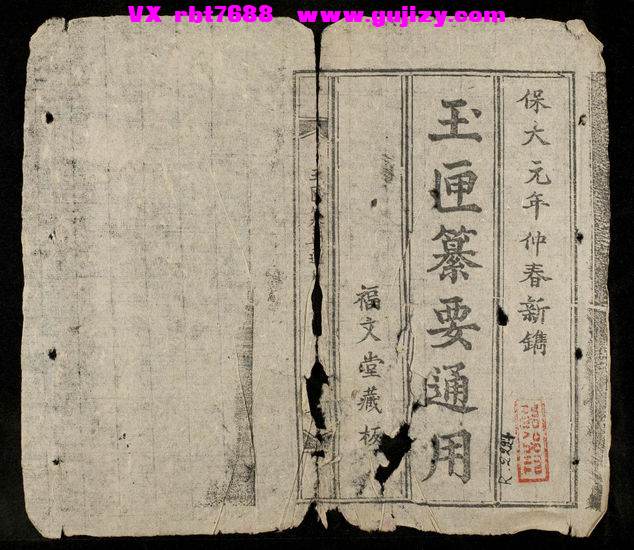 VX rbt7688 www.gujizy.com
保大元年仲春新鐫
玉匣纂要通用
福文堂藏板